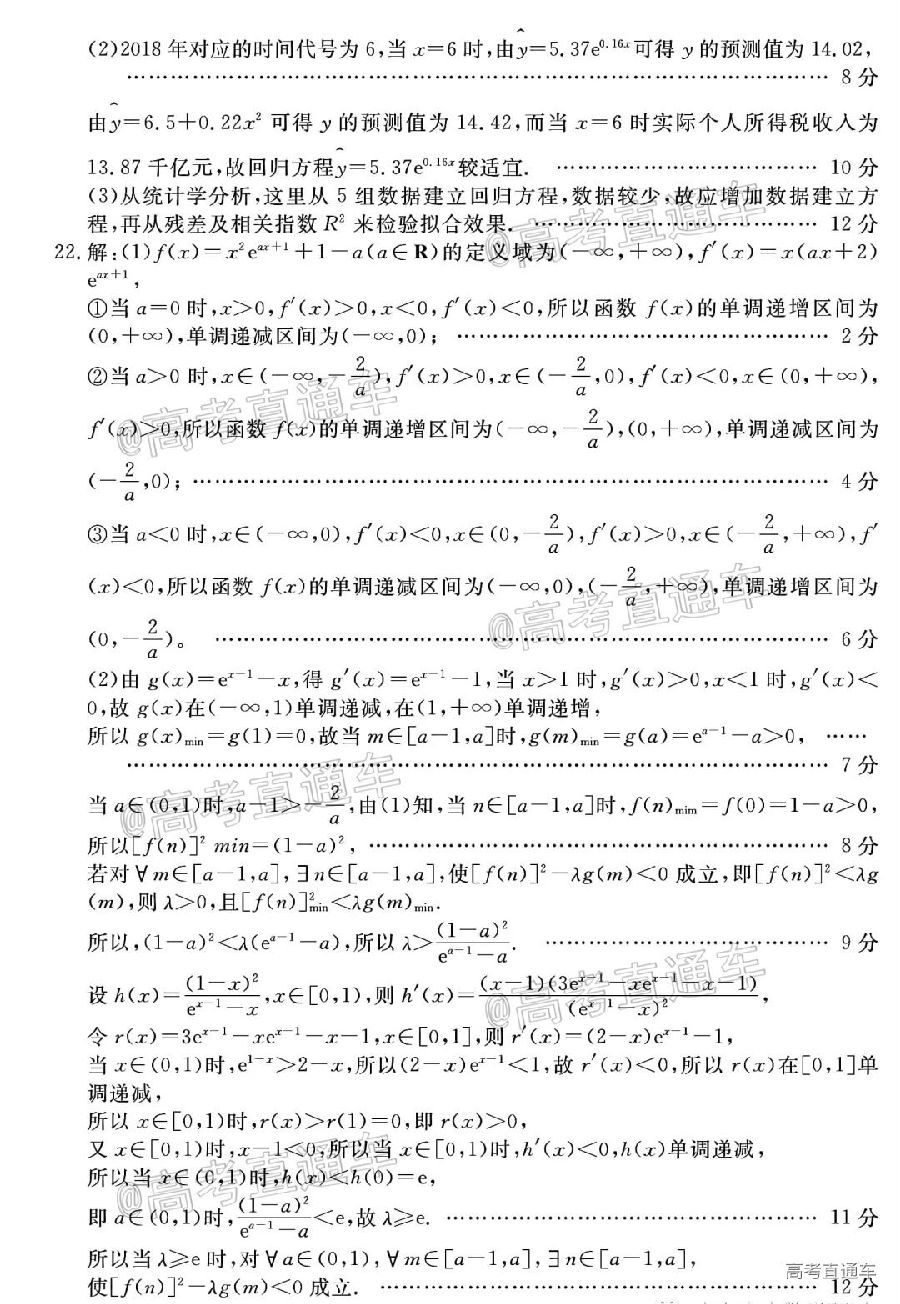 (2)2018年对应的时间代号为6,当x=6时,由ŷ=5.37e^{0.16x}可得y的预测值为14.02,
…………………………………………………………………………………… 8分
由ŷ=6.5+0.22x²可得y的预测值为14.42,而当x=6时实际个人所得税收入为
13.87千亿元,故回归方程ŷ=5.37e^{0.16x}较适宜. ……………………………… 10分
(3)从统计学分析,这里从5组数据建立回归方程,数据较少,故应增加数据建立方
程,再从残差及相关指数R²来检验拟合效果. ……………………………… 12分
22.解:(1)f(x)=x²e^{ax+1}+1-a(a∈R)的定义域为(-∞,+∞),f′(x)=x(ax+2)
e^{ax+1},
①当a=0时,x>0,f′(x)>0,x<0,f′(x)<0,所以函数f(x)的单调递增区间为
(0,+∞),单调递减区间为(-∞,0); ……………………………………… 2分
②当a>0时,x∈(-∞,-2/a),f′(x)>0,x∈(-2/a,0),f′(x)<0,x∈(0,+∞),
f′(x)>0,所以函数f(x)的单调递增区间为(-∞,-2/a),(0,+∞),单调递减区间为
(-2/a,0); …………………………………………………………………… 4分
③当a<0时,x∈(-∞,0),f′(x)<0,x∈(0,-2/a),f′(x)>0,x∈(-2/a,+∞),f′
(x)<0,所以函数f(x)的单调递减区间为(-∞,0),(-2/a,+∞),单调递增区间为
(0,-2/a)。 …………………………………………………………………… 6分
(2)由g(x)=e^{x-1}-x,得g′(x)=e^{x-1}-1,当x>1时,g′(x)>0,x<1时,g′(x)<
0,故g(x)在(-∞,1)单调递减,在(1,+∞)单调递增,
所以g(x)_{min}=g(1)=0,故当m∈[a-1,a]时,g(m)_{min}=g(a)=e^{a-1}-a>0, ……
…………………………………………………………………………………… 7分
当a∈(0,1)时,a-1>-2/a,由(1)知,当n∈[a-1,a]时,f(n)_{min}=f(0)=1-a>0,
所以[f(n)]² min=(1-a)², ………………………………………………… 8分
若对∀m∈[a-1,a],∃n∈[a-1,a],使[f(n)]²-λg(m)<0成立,即[f(n)]²<λg
(m),则λ>0,且[f(n)]²_{min}<λg(m)_{min}.
所以,(1-a)²<λ(e^{a-1}-a),所以λ>(1-a)²/(e^{a-1}-a). ……………………………… 9分
设h(x)=(1-x)²/(e^{x-1}-x),x∈[0,1),则h′(x)=(x-1)(3e^{x-1}-xe^{x-1}-x-1)/(e^{x-1}-x)²,
令r(x)=3e^{x-1}-xe^{x-1}-x-1,x∈[0,1],则r′(x)=(2-x)e^{x-1}-1,
当x∈(0,1)时,e^{1-x}>2-x,所以(2-x)e^{x-1}<1,故r′(x)<0,所以r(x)在[0,1]单
调递减,
所以x∈[0,1)时,r(x)>r(1)=0,即r(x)>0,
又x∈[0,1)时,x-1<0,所以当x∈[0,1)时,h′(x)<0,h(x)单调递减,
所以当x∈(0,1)时,h(x)<h(0)=e,
即a∈(0,1)时,(1-a)²/(e^{a-1}-a)<e,故λ≥e. ………………………………………… 11分
所以当λ≥e时,对∀a∈(0,1),∀m∈[a-1,a],∃n∈[a-1,a],
使[f(n)]²-λg(m)<0成立. ……………………………………………… 12分
@高考直通车
@高考直通车
@高考直通车
@高考直通车
@高考直通车
@高考直通车
高考直通车